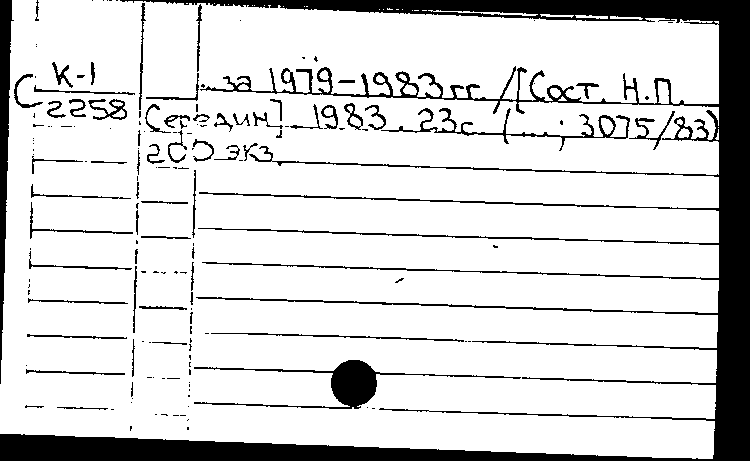 С К-1
2258
...за 1979-1983 гг. / [Сост. Н.П.
Середин]. 1983. 23с. (...; 3075/83)
200 экз.